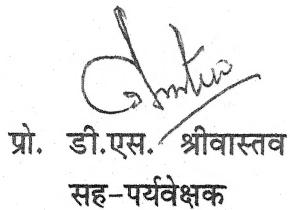 प्रो. डी.एस. श्रीवास्तव
सह-पर्यवेक्षक